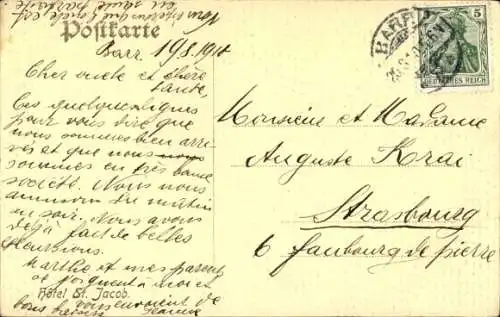 Postkarte
Barr 19.8.1910
Cher oncle et chère
tante,
Ces quelques lignes
pour vous dire que
nous sommes bien arri-
vés et que nous
sommes en très bonne
société. Nous nous
amusons du matin
au soir. Nous avons
déjà fait de belles
excursions.
Marthe et mes parents
se joignent à moi et
vous envoient de
bons baisers Jeanne
Hôtel St. Jacob.
BARR
5
DEUTSCHES REICH
Monsieur et Madame
Auguste Krai
Strasbourg
6 faubourg de pierre